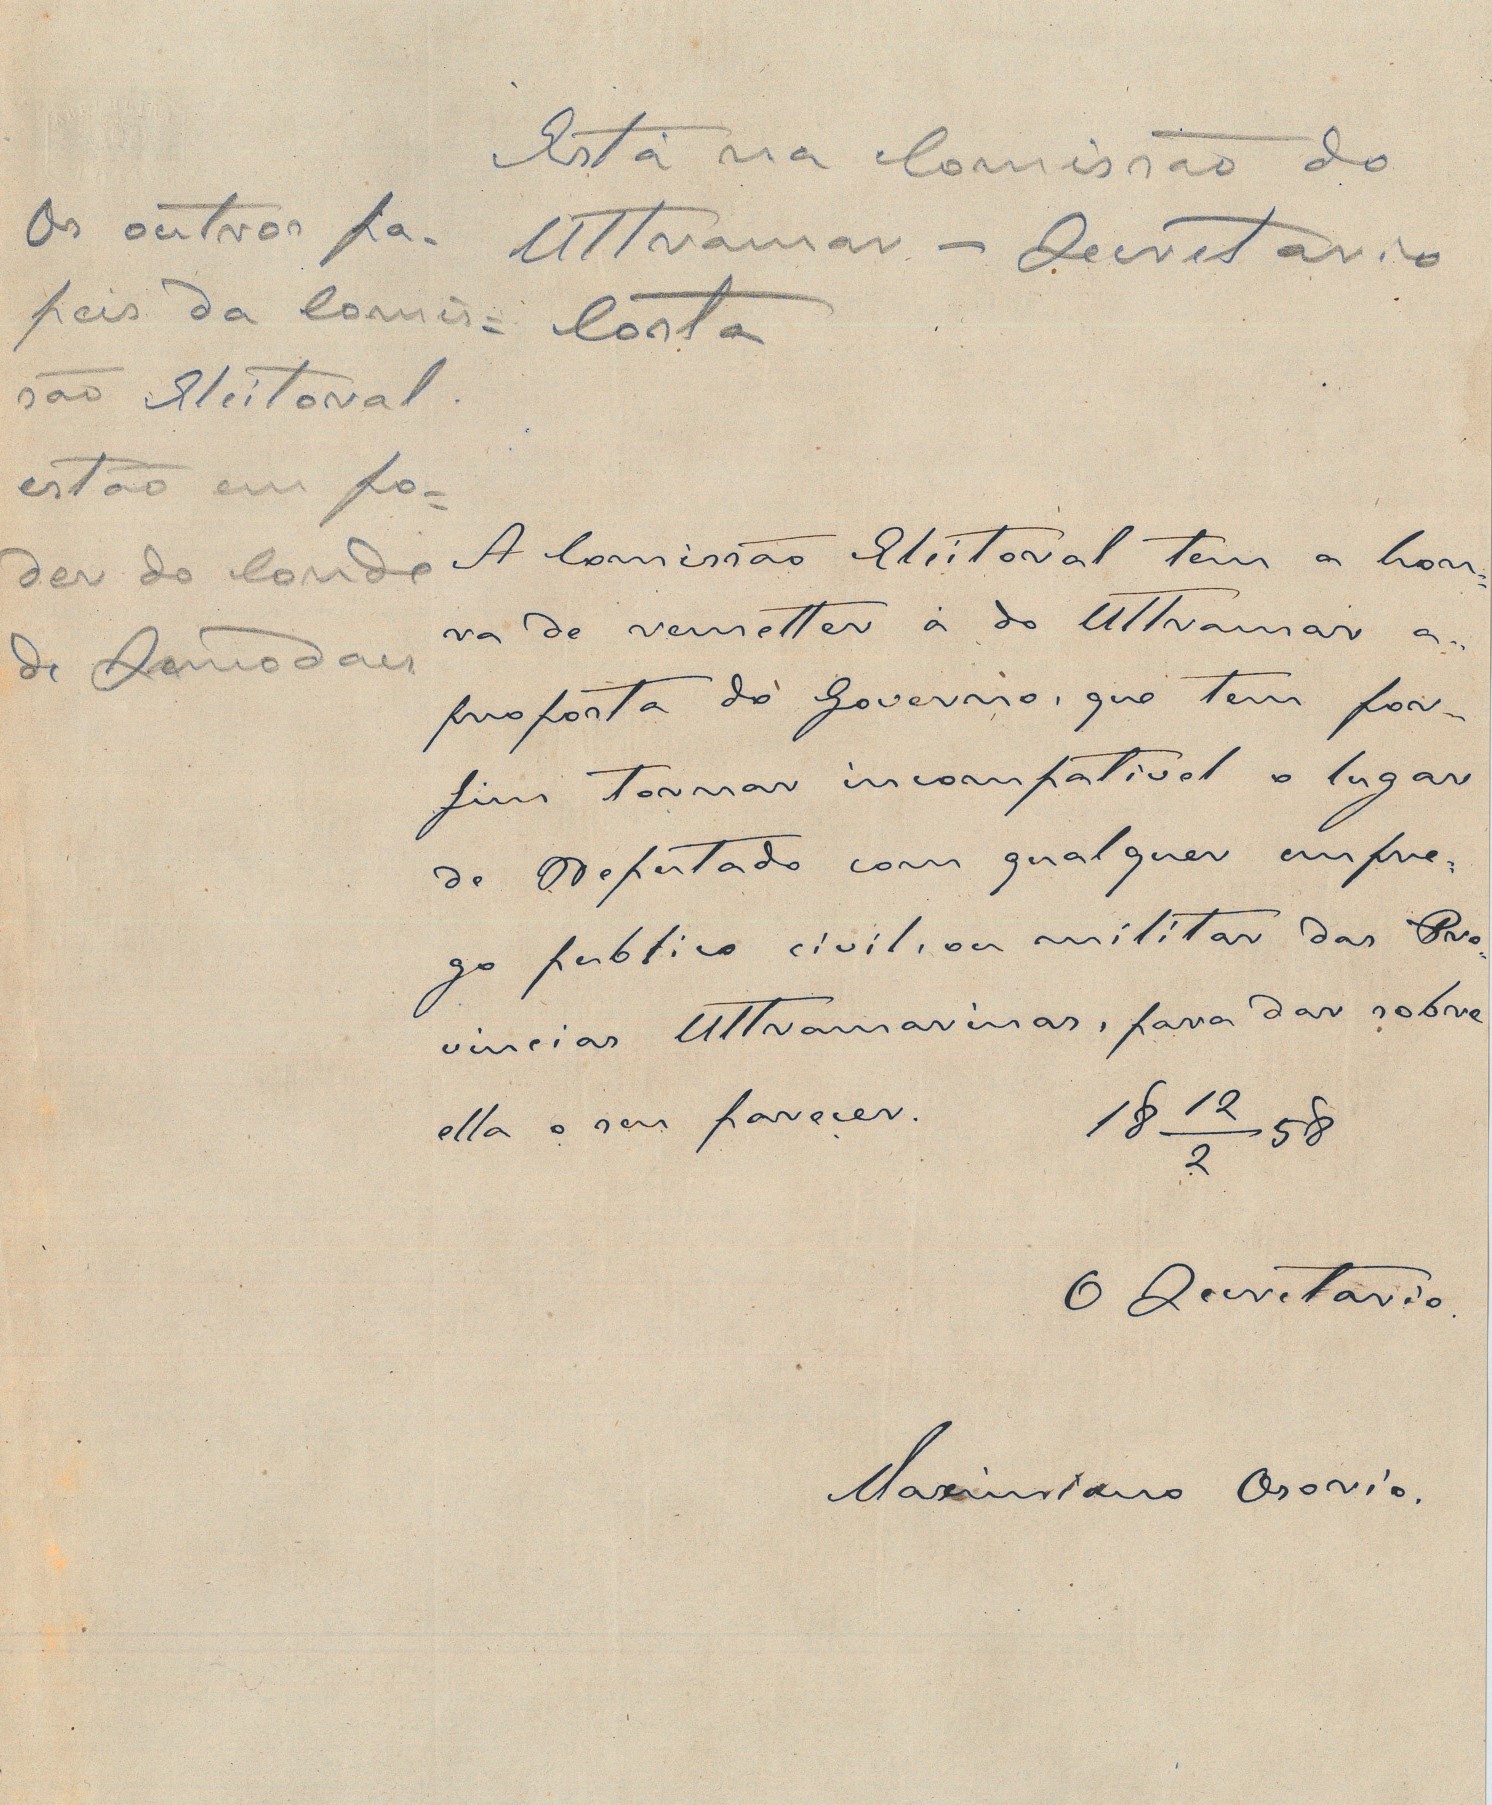 Está na Comissão do
Ultramar - Secretario
Costa
Os outros pa-
peis da Comis=
são Eleitoral.
estão em po=
der do Conde
de Samodaes
A Comissão Eleitoral tem a hon=
ra de remetter á do Ultramar a-
proposta do Governo, que tem por-
fim tornar incompativel o lugar
de Deputado com qualquer empre-
go publico civil, ou militar das Pro-
vincias Ultramarinas, para dar sobre
ella o seu parecer. 18 12/2 58
O Secretario.
Maximiano Osorio.